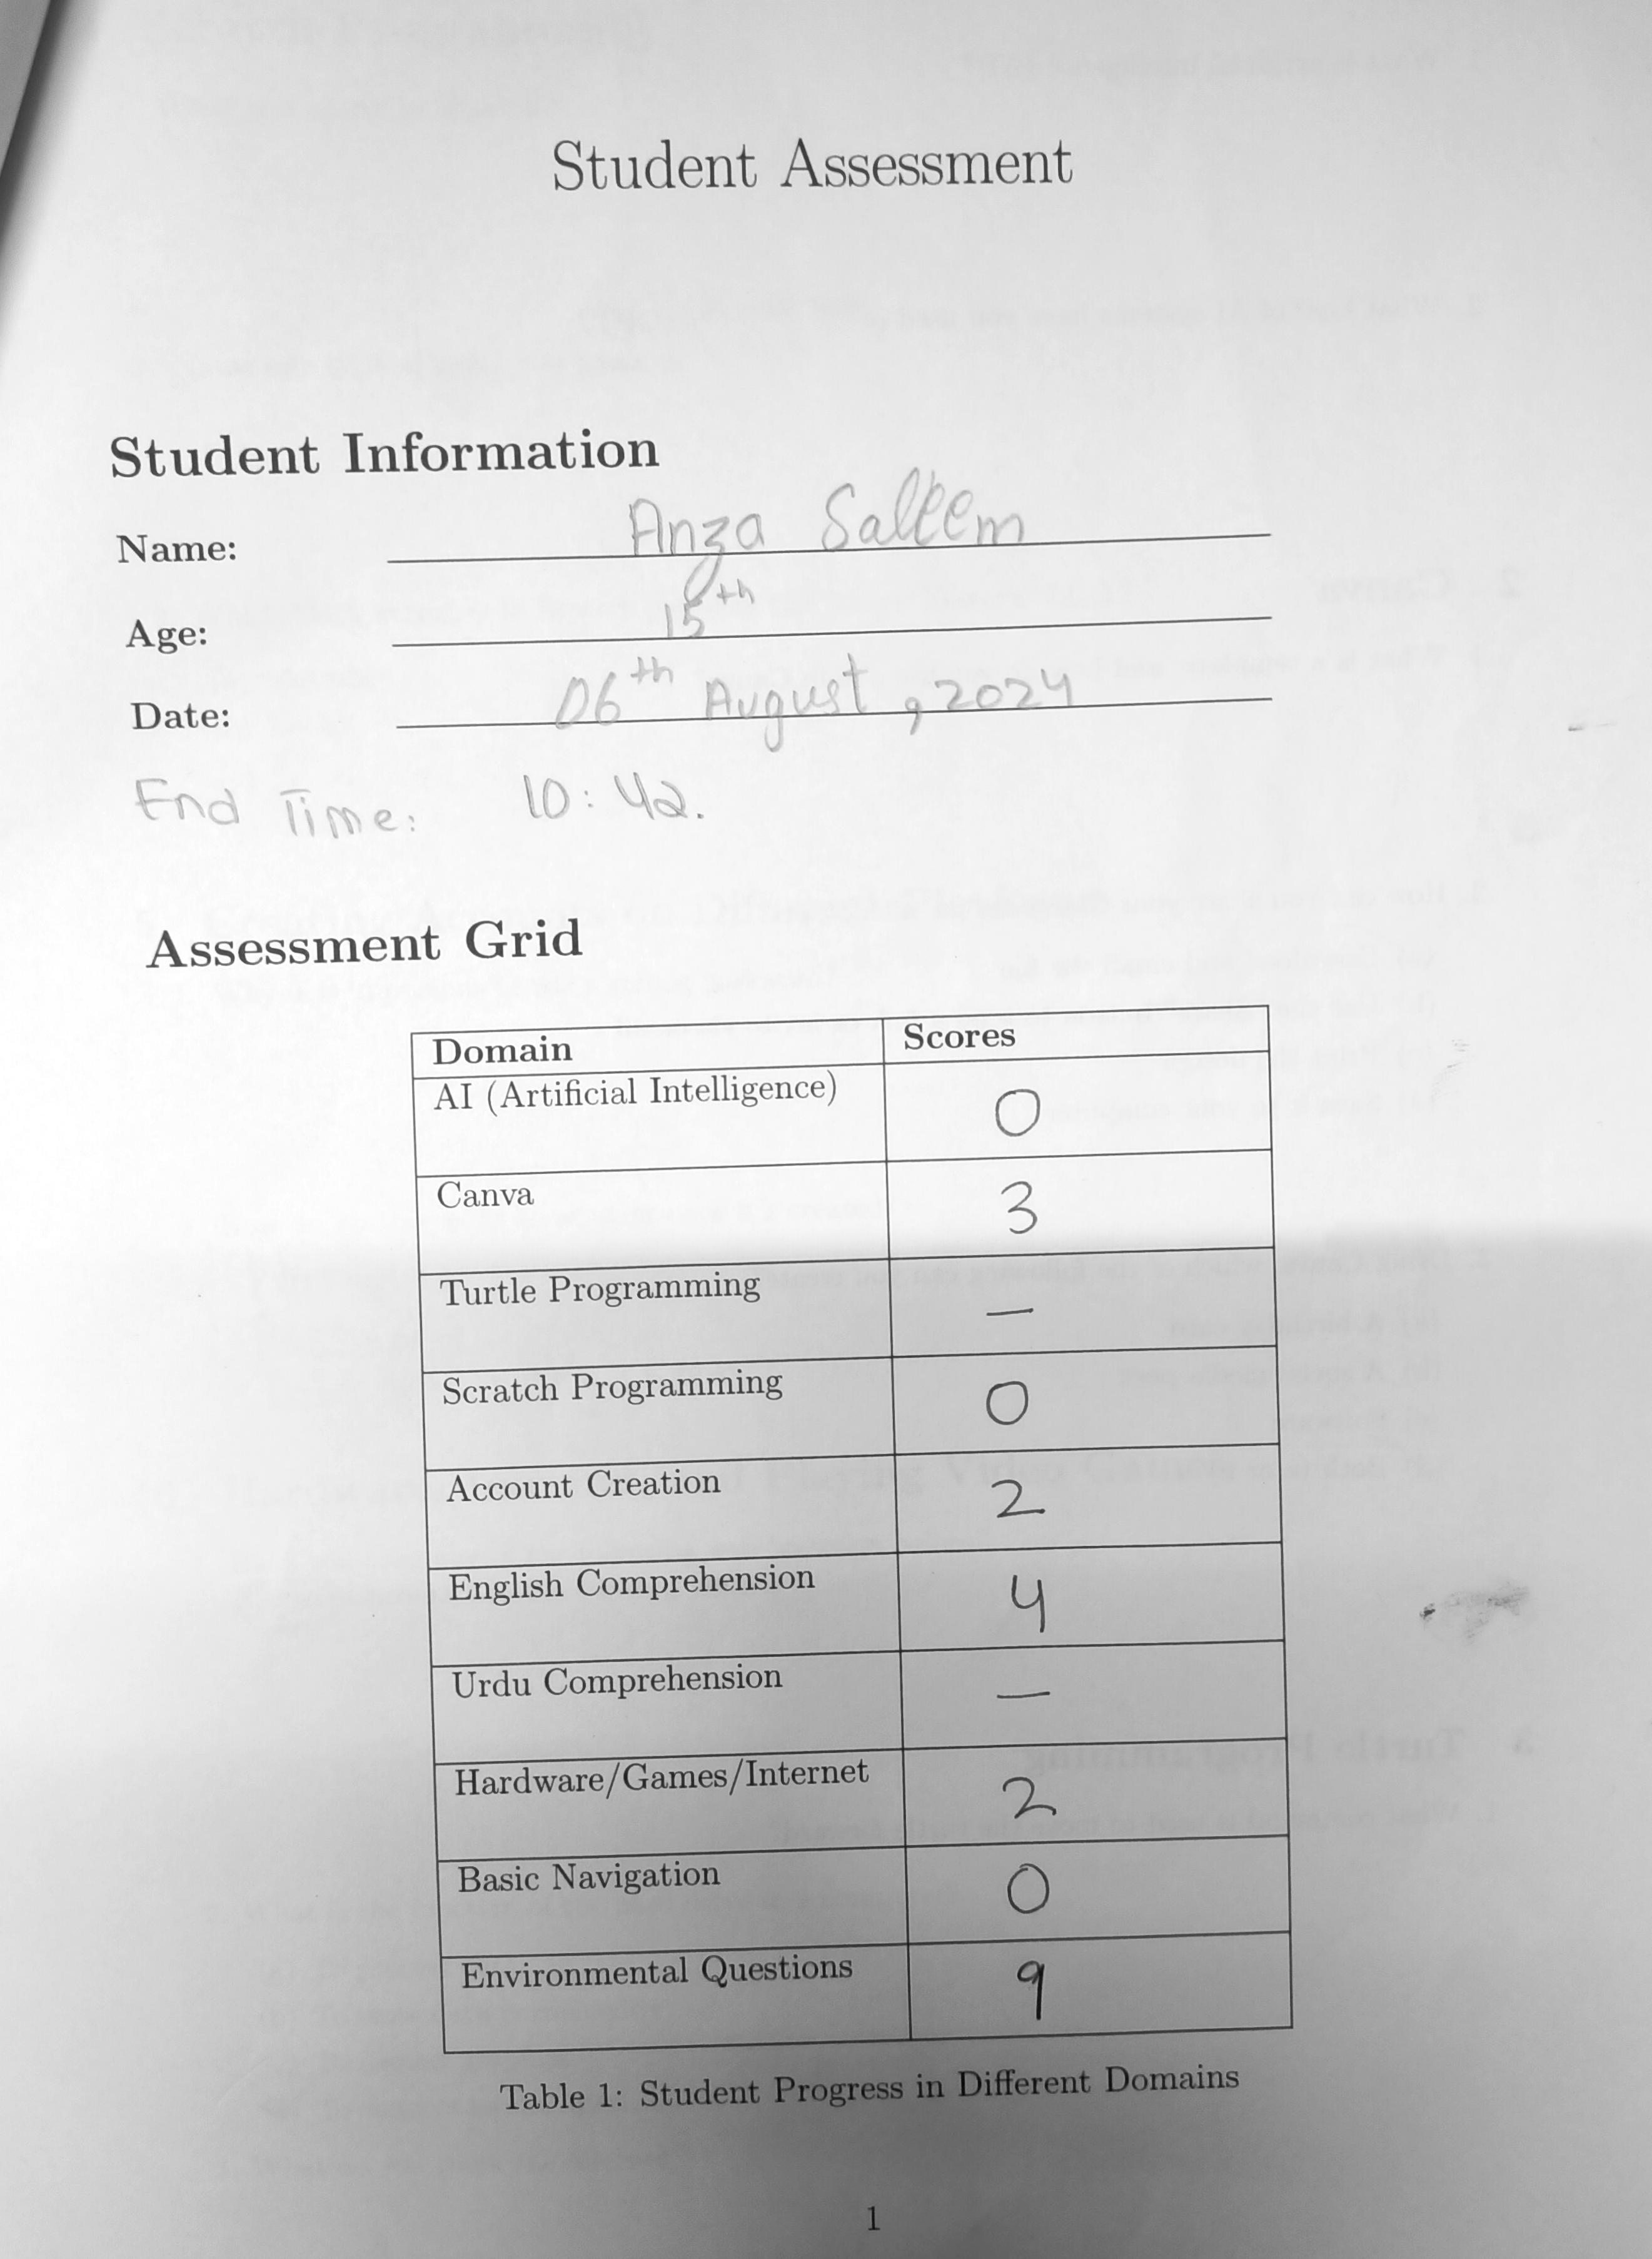 Student Assessment
Student Information
Name: Anza Saleem
Age: 15th
Date: 06th August, 2024
End Time: 10:42.
Assessment Grid
Domain Scores
AI (Artificial Intelligence) 0
Canva 3
Turtle Programming —
Scratch Programming 0
Account Creation 2
English Comprehension 4
Urdu Comprehension —
Hardware/Games/Internet 2
Basic Navigation 0
Environmental Questions 9
Table 1: Student Progress in Different Domains
1